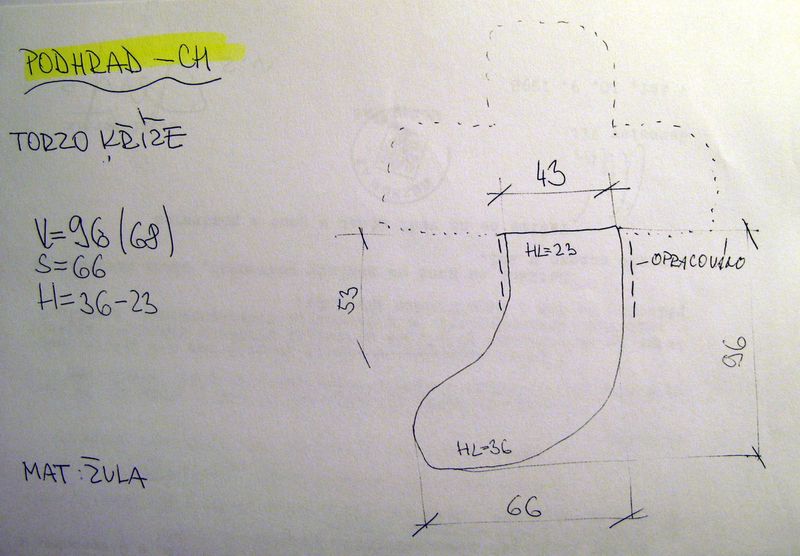 PODHRAD – CH
TORZO KŘÍŽE
V=96 (68)
S=66
H=36-23
MAT: ŽULA
43
HL=23
OPRACOVÁNO
53
96
HL=36
66